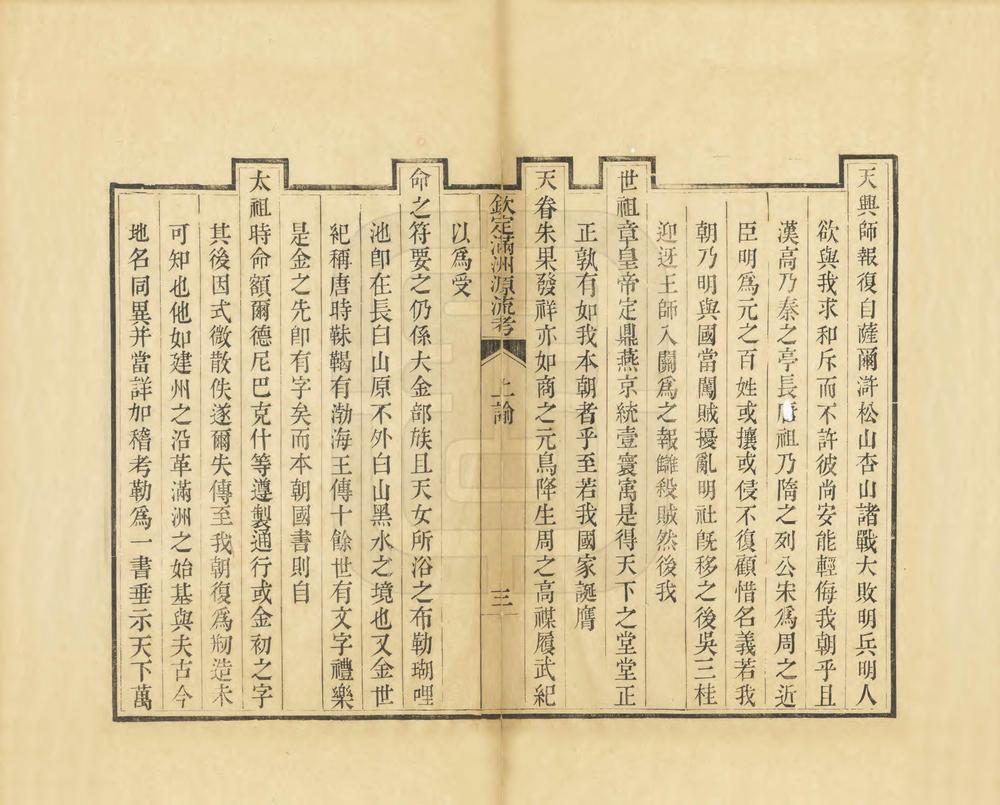 天興師報復自薩爾滸松山杏山諸戰大敗明兵明人
欲與我求和斥而不許彼尚安能輕侮我朝乎且
漢高乃秦之亭長唐祖乃隋之列公宋為周之近
臣明為元之百姓或攘或侵不復顧惜名義若我
朝乃明與國當闖賊擾亂明社旣移之後吳三桂
迎迓王師入關為之報讎殺賊然後我
世祖章皇帝定鼎燕京統壹寰寓是得天下之堂堂正
正孰有如我本朝者乎至若我國家誕膺
天眷朱果發祥亦如商之元鳥降生周之高禖履武紀
欽定滿洲源流考
上諭
三
以為受
命之符要之仍係大金部族且天女所浴之布勒瑚哩
池卽在長白山原不外白山黑水之境也又金世
紀稱唐時靺鞨有渤海王傳十餘世有文字禮樂
是金之先卽有字矣而本朝國書則自
太祖時命額爾德尼巴克什等遵製通行或金初之字
其後因式微散佚遂爾失傳至我朝復為刱造未
可知也他如建州之沿革滿洲之始基與夫古今
地名同異并當詳加稽考勒為一書垂示天下萬